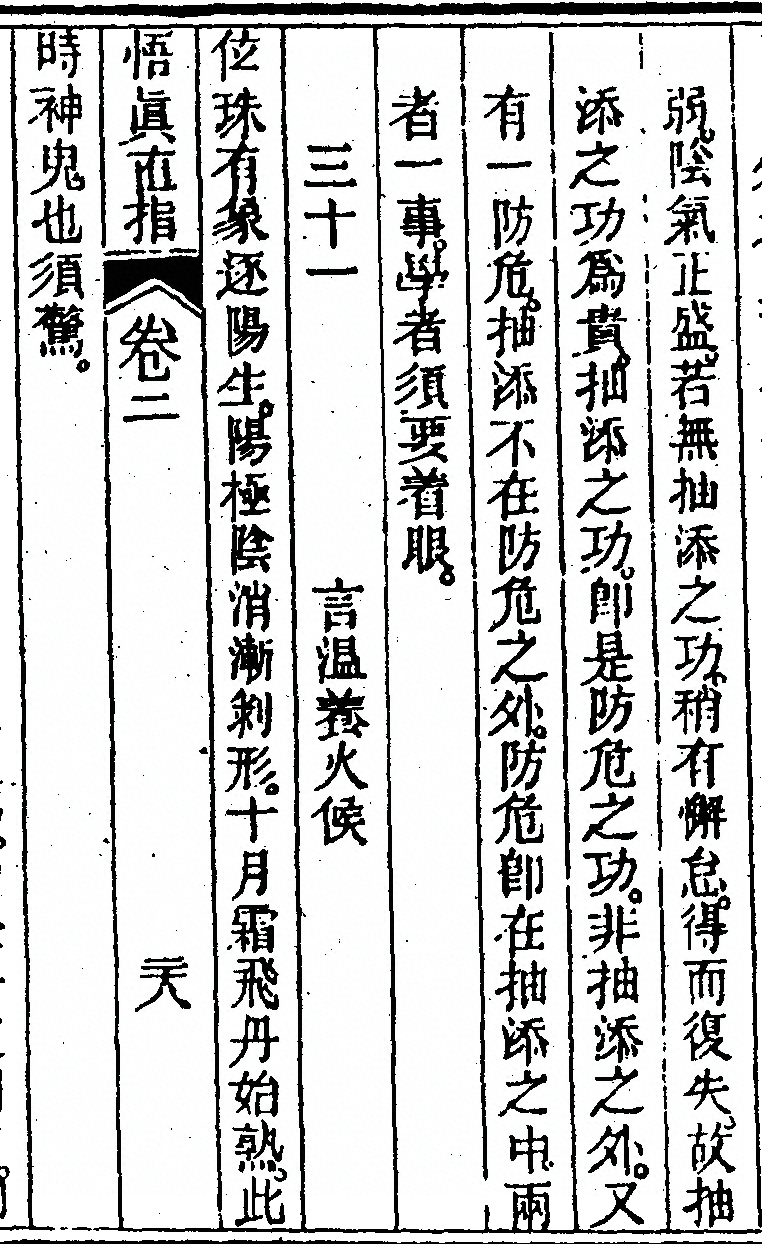 弱。陰氣正盛。若無抽添之功。稍有懈怠。得而復失。故抽
添之功爲貴。抽添之功。卽是防危之功。非抽添之外。又
有一防危。抽添不在防危之外。防危卽在抽添之中。兩
者一事。學者須要着眼。
三十一 言温養火候
位珠有象逐陽生。陽極陰消漸剝形。十月霜飛丹始熟。此
悟眞直指 卷二 二八
時神鬼也須驚。